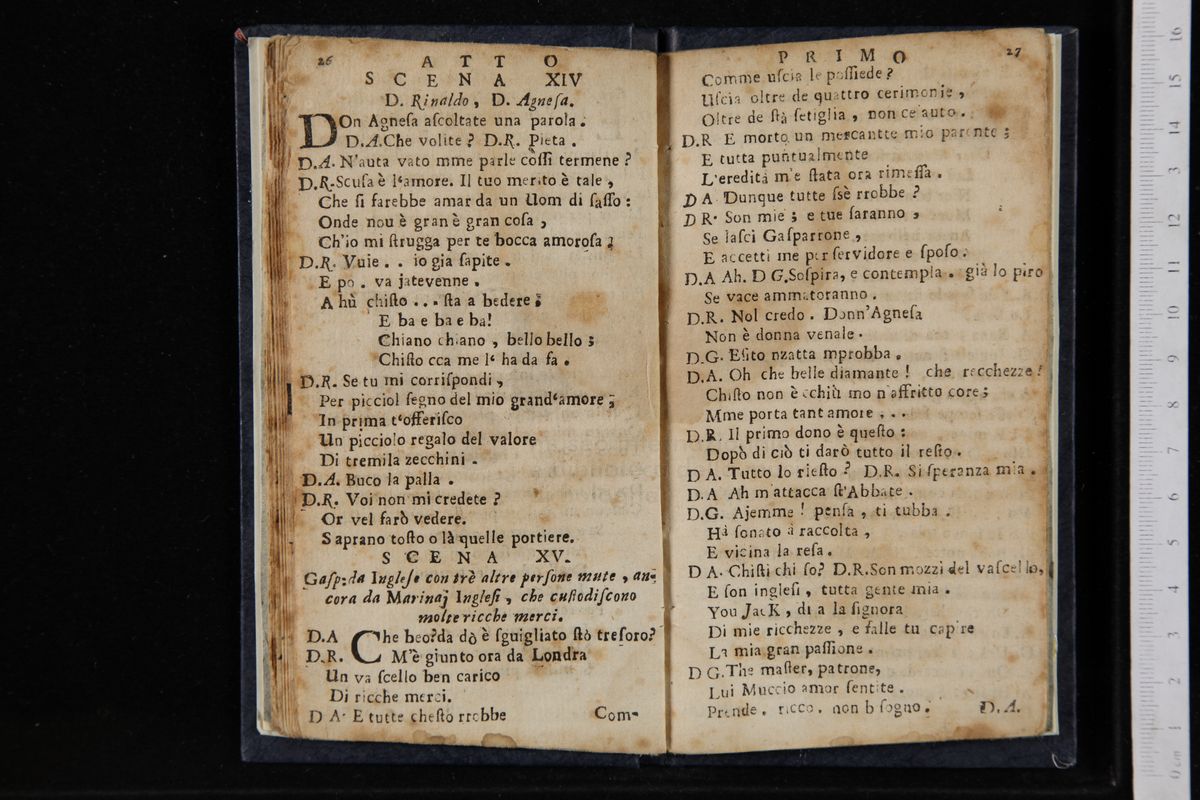 26 A T T O
S C E N A XIV
D. Rinaldo, D. Agneſa.
DOn Agneſa aſcoltate una parola.
D.A.Che volite? D.R. Pieta.
D.A. N'auta vato mme parle còſſi termene?
D.R.Scuſa è l'amore. Il tuo merito è tale,
Che ſi farebbe amar da un Uom di ſaſſo:
Onde nou è gran è gran coſa,
Ch'io mi ſtrugga per te bocca amoroſa;
D.R. Vuie . . io gia ſapite.
E po. va jatevenne.
A hù chiſto ... ſta a bedere;
E ba e ba e ba!
Chiano chiano, bello bello;
Chiſto cca me l' ha da fa.
D.R. Se tu mi corriſpondi,
Per picciol ſegno del mio grand'amore;
In prima t'offeriſco
Un picciolo regalo del valore
Di tremila zecchini.
D.A. Buco la palla.
D.R. Voi non mi credete?
Or vel farò vedere.
S aprano toſto o là quelle portiere.
S C E N A XV.
Gaſp:da Ingleſe con trè altre perſone mute, an-
cora da Marinaj Ingleſi, che cuſtodiſcono
molte ricche merci.
D.A Che beo?da dò è ſguigliato ſtò treſoro?
D.R. M'è giunto ora da Londra
Un va ſcello ben carico
Di ricche merci.
D A. E tutte cheſtò rrobbe Com-
P R I M O 27
Comme uſcia le poſſiede?
Uſcia oltre de quattro cerimonie,
Oltre de ſtà ſetiglia, non ce auto.
D.R E morto un mercantte mio parente;
E tutta puntualmente
L'eredità m'e ſtata ora rimeſſa.
D A Dunque tutte ſsè rrobbe?
D R. Son mie; e tue ſaranno,
Se laſci Gaſparrone,
E accetti me per ſervidore e ſpoſo.
D.A Ah. D G.Soſpira, e contempla. già lo piro
Se vace ammatoranno.
D.R. Nol credo. Donn'Agneſa
Non è donna venale.
D.G. Eſito nzatta mprobba.
D.A. Oh che belle diamante! che recchezze!
Chiſto non è cchiù mo n'affritto core;
Mme porta tant amore ...
D.R. Il primo dono è queſto:
Dopò di ciò ti darò tutto il reſto.
D A. Tutto lo rieſto? D.R. Si ſperanza mia.
D.A Ah m'attacca ſt'Abbate.
D.G. Ajemme! penſa, ti tubba.
Hà ſonato à raccolta,
E vicina la reſa.
D A. Chiſti chi ſo? D.R.Son mozzi del vaſcello,
E ſon ingleſi, tutta gente mia.
You JacK, di a la ſignora
Di mie ricchezze, e falle tu capire
La mia gran paſſione.
D G.The maſter, patrone,
Lui Muccio amor ſentite.
Prende. ricco. non b ſogno. D.A.